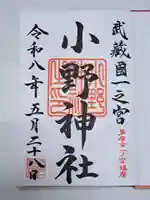 武蔵國一之宮
小野神社
令和八年五月二十八日